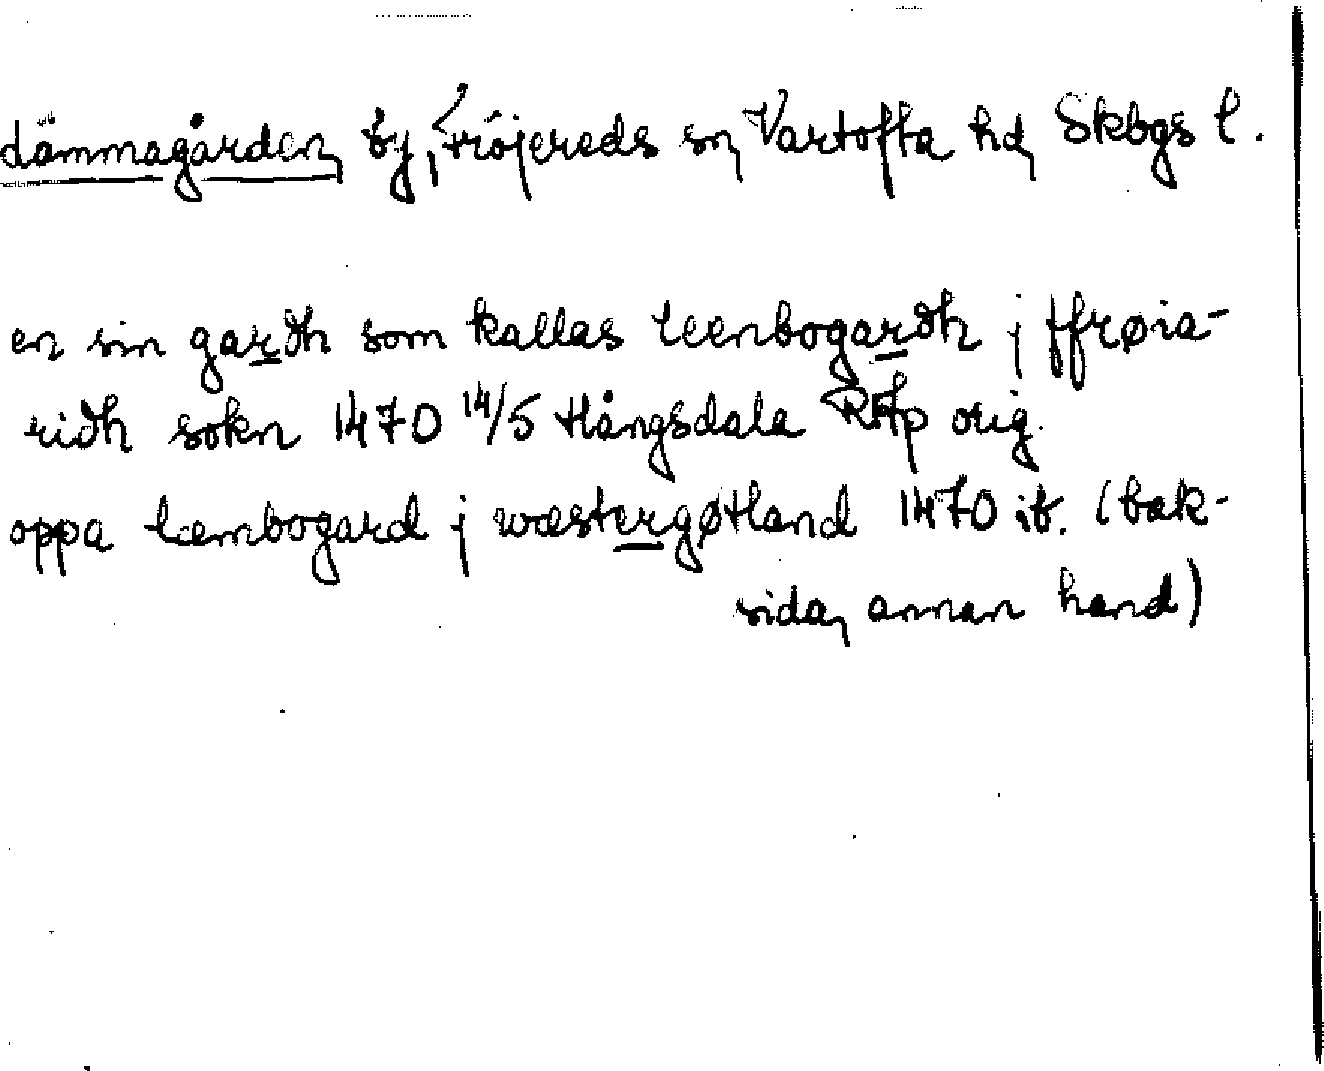 dämmagården by, Fröjereds sn, Vartofta hd, Skbgs l.
en sin gardh som kallas leenbogardh j ffrøia-
ridh sokn 1470 14/5 Hångsdala RAp orig.
oppa læmbogard j wæstergøtland 1470 ib. (bak-
sida, annan hand)